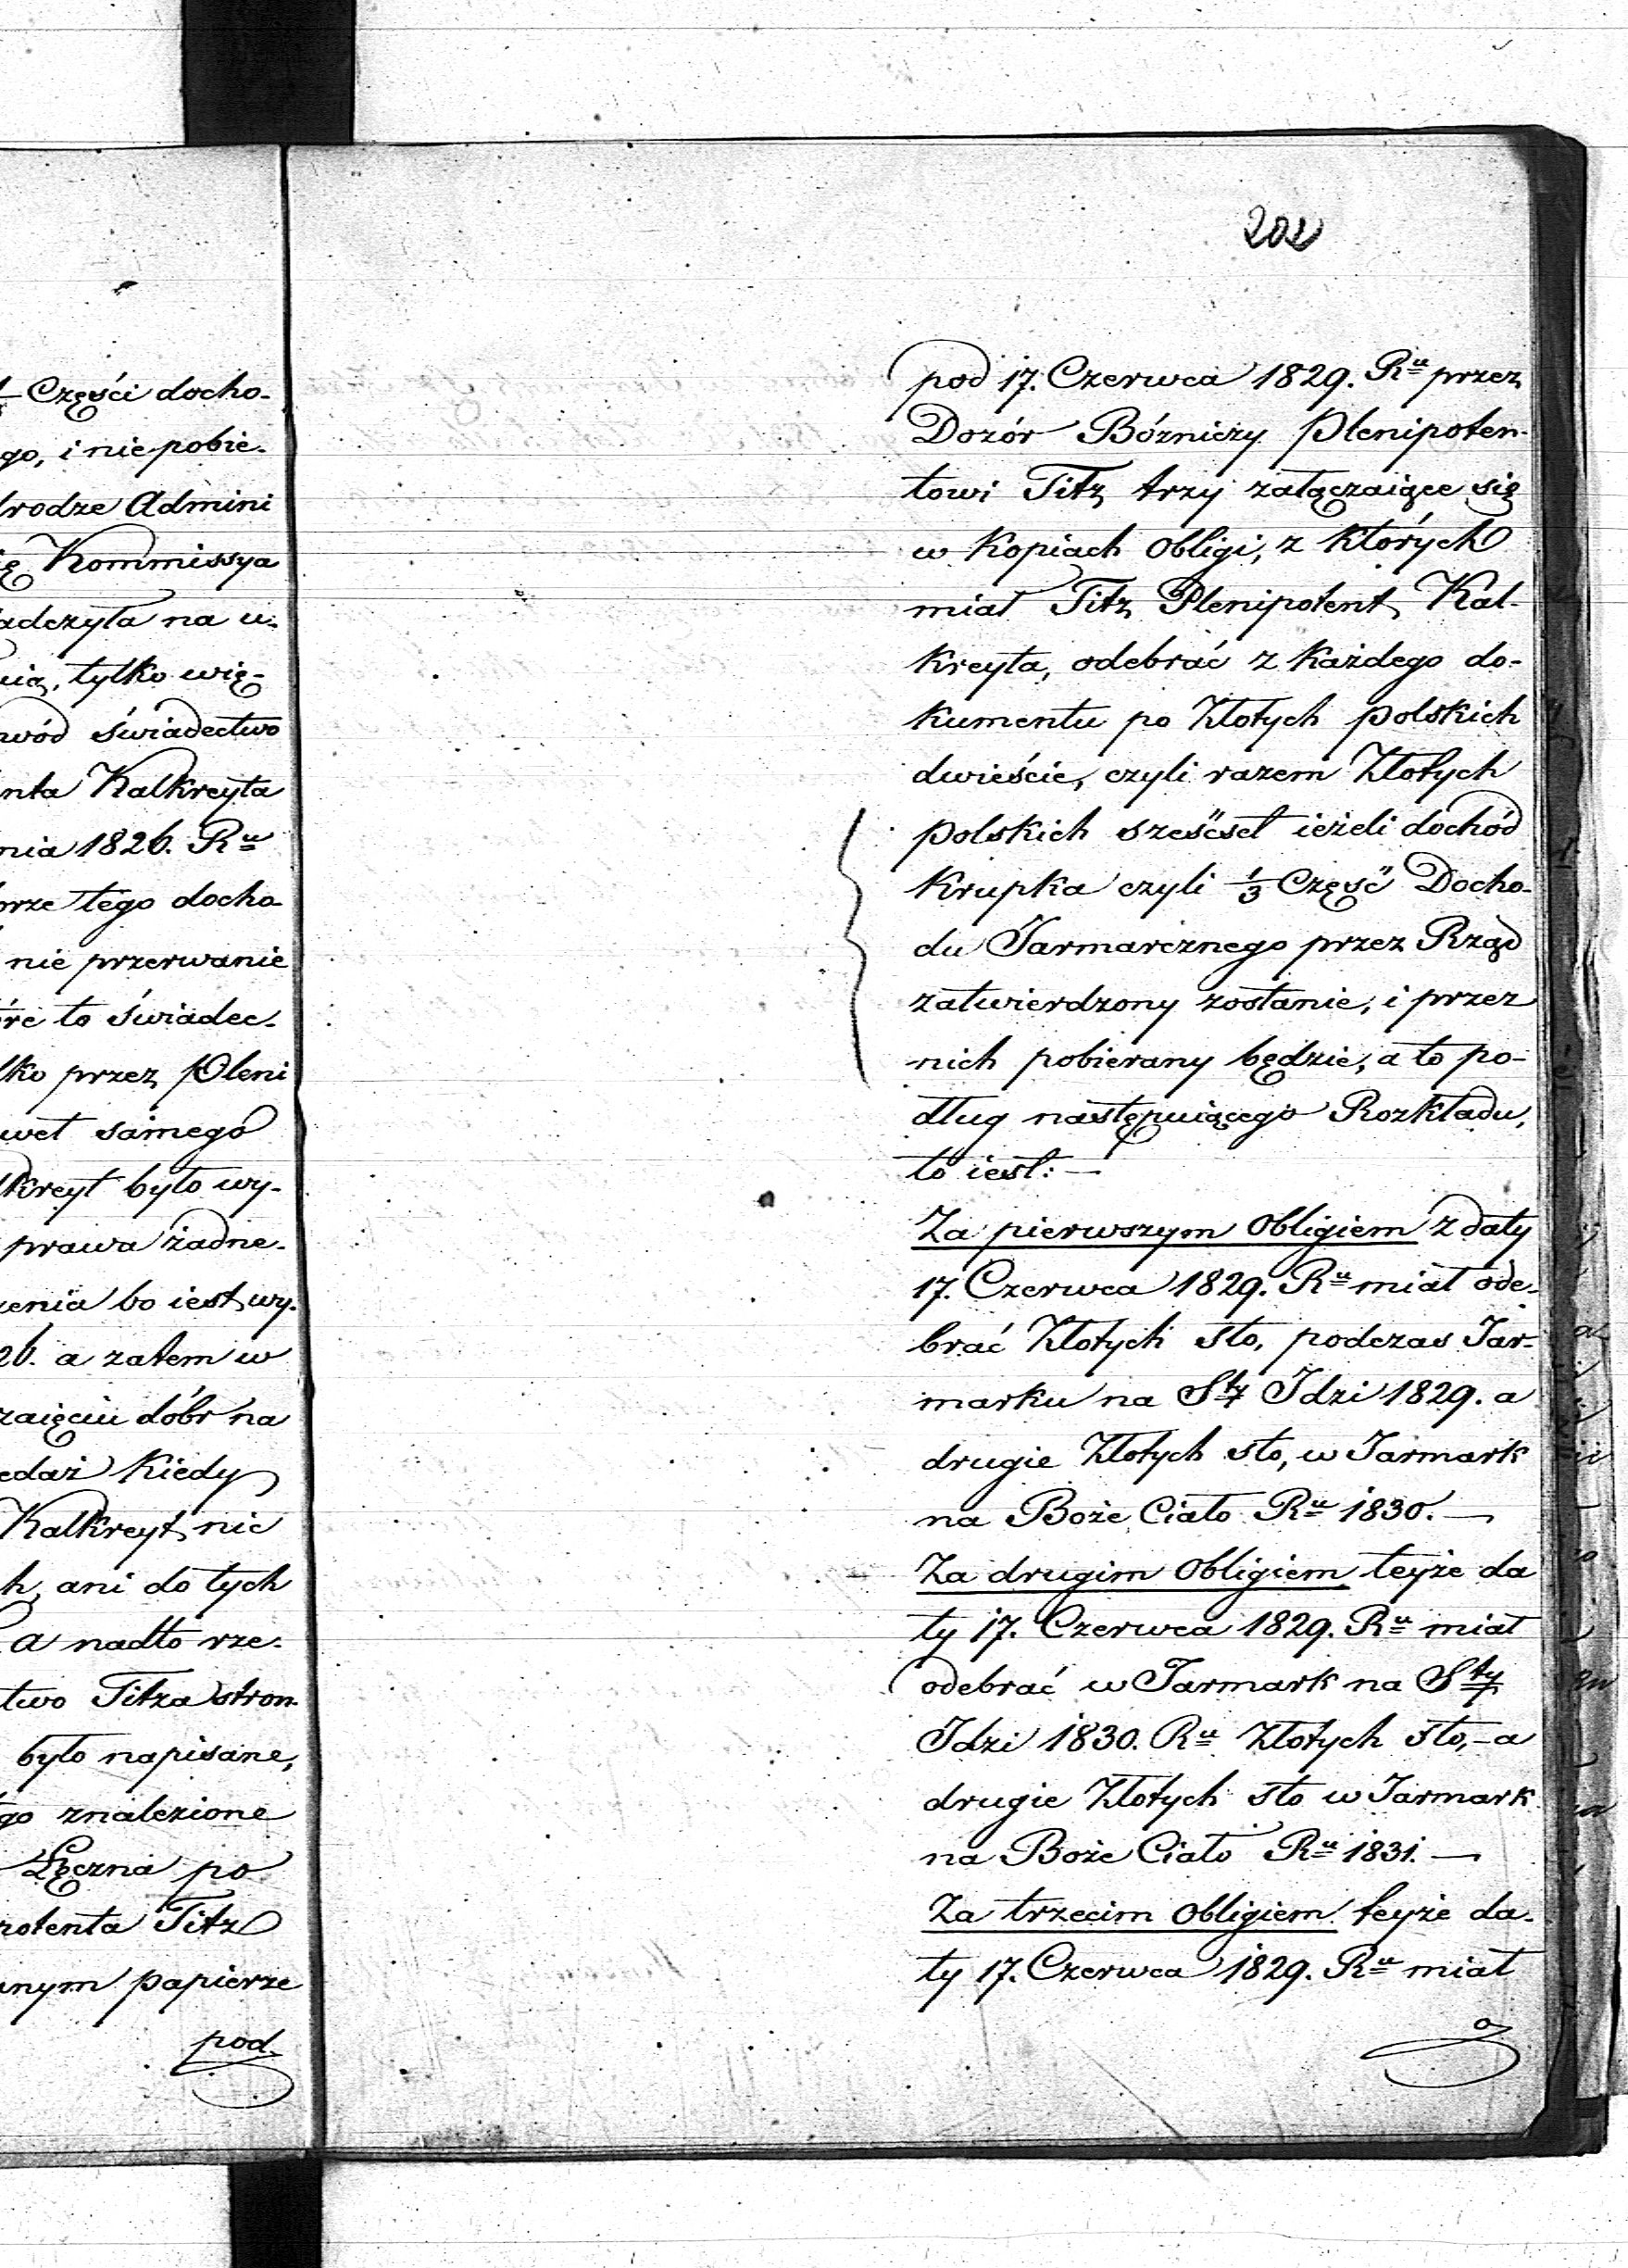 202
⅓ Części docho-
go, i nie pobie-
drodze Admini
ię Kommissya
adczyła na u-
nia, tylko wię-
wód świadectwo
nta Kalkreyta
nia 1826. Ru
brze tego docho-
nie przerwanie
óre to świadec-
lko przez Pleni
wet samego
lkreyt było wy-
prawa żadne-
zenia bo iest wy-
26. a zatem w
zaięciu dóbr na
edaż Kiedy
Kalkreyt nic
h, ani do tych
a nadto rze-
two Titza stron-
było napisane,
go znalezione
Łęczna po
notenta Titz
nym papierze
pod
pod 17. Czerwca 1829. Ru przez
Dozór Bózniczy Plenipoten-
towi Titz trzy załączaiące się
w Kopiach Obligi, z których
miał Titz Plenipotent Kal-
kreyta, odebrać z Każdego do-
kumentu po Złotych polskich
dwieście, czyli razem Złotych
polskich sześćset ieżeli dochód
Krupka czyli ⅓ Część Docho-
du Jarmarcznego przez Rząd
zatwierdzony zostanie, i przez
nich pobierany będzie, a to po-
dług następuiącego Rozkładu,
to iest: —
Za pierwszym Obligiem z daty
17. Czerwca 1829. Ru miał ode-
brać Złotych sto, podczas Jar-
marku na Sty Idzi 1829. a
drugie Złotych sto, w Jarmark
na Boże Ciało Ru 1830. —
Za drugim Obligiem teyże da
ty 17. Czerwca 1829. Ru miał
odebrać w Jarmark na Sty
Idzi 1830. Ru Złotych sto, – a
drugie Złotych sto w Jarmark
na Boże Ciało Ru 1831. —
Za trzecim Obligiem teyże da-
ty 17. Czerwca 1829. Ru miał